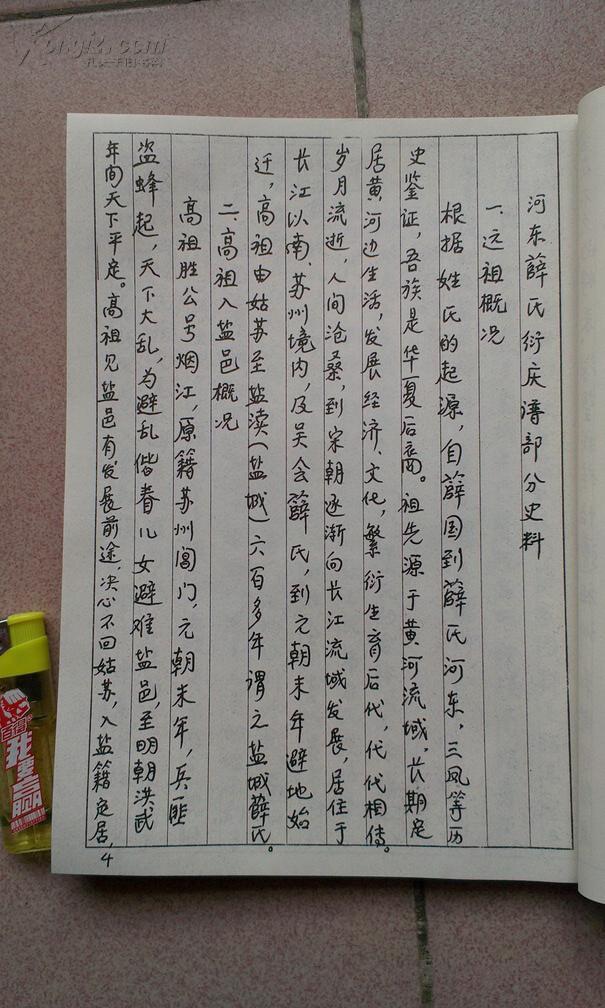 河东薛氏衍庆谱部分史料
一、远祖概况
根据姓氏的起源，自薛国到薛氏河东，三凤等历
史鉴证，吾族是华夏后裔。祖先源于黄河流域。长期定
居黄河边生活，发展经济、文化，繁衍生育后代，代代相传。
岁月流逝，人间沧桑，到宋朝逐渐向长江流域发展，居住于
长江以南、苏州境内，及吴会薛氏，到元朝末年避地始
迁，高祖由姑苏至盐渎（盐城）六百多年谓之盐城薛氏。
二、高祖入盐邑概况
高祖胜公号烟江，原籍苏州阊门，元朝末年，兵匪
盗蜂起，天下大乱，为避乱偕眷儿女避难盐邑，至明朝洪武
年间天下平定。高祖见盐邑有发展前途，决心不回姑苏，入盐籍定居，
4
Kongfz.com
百得
我要赢